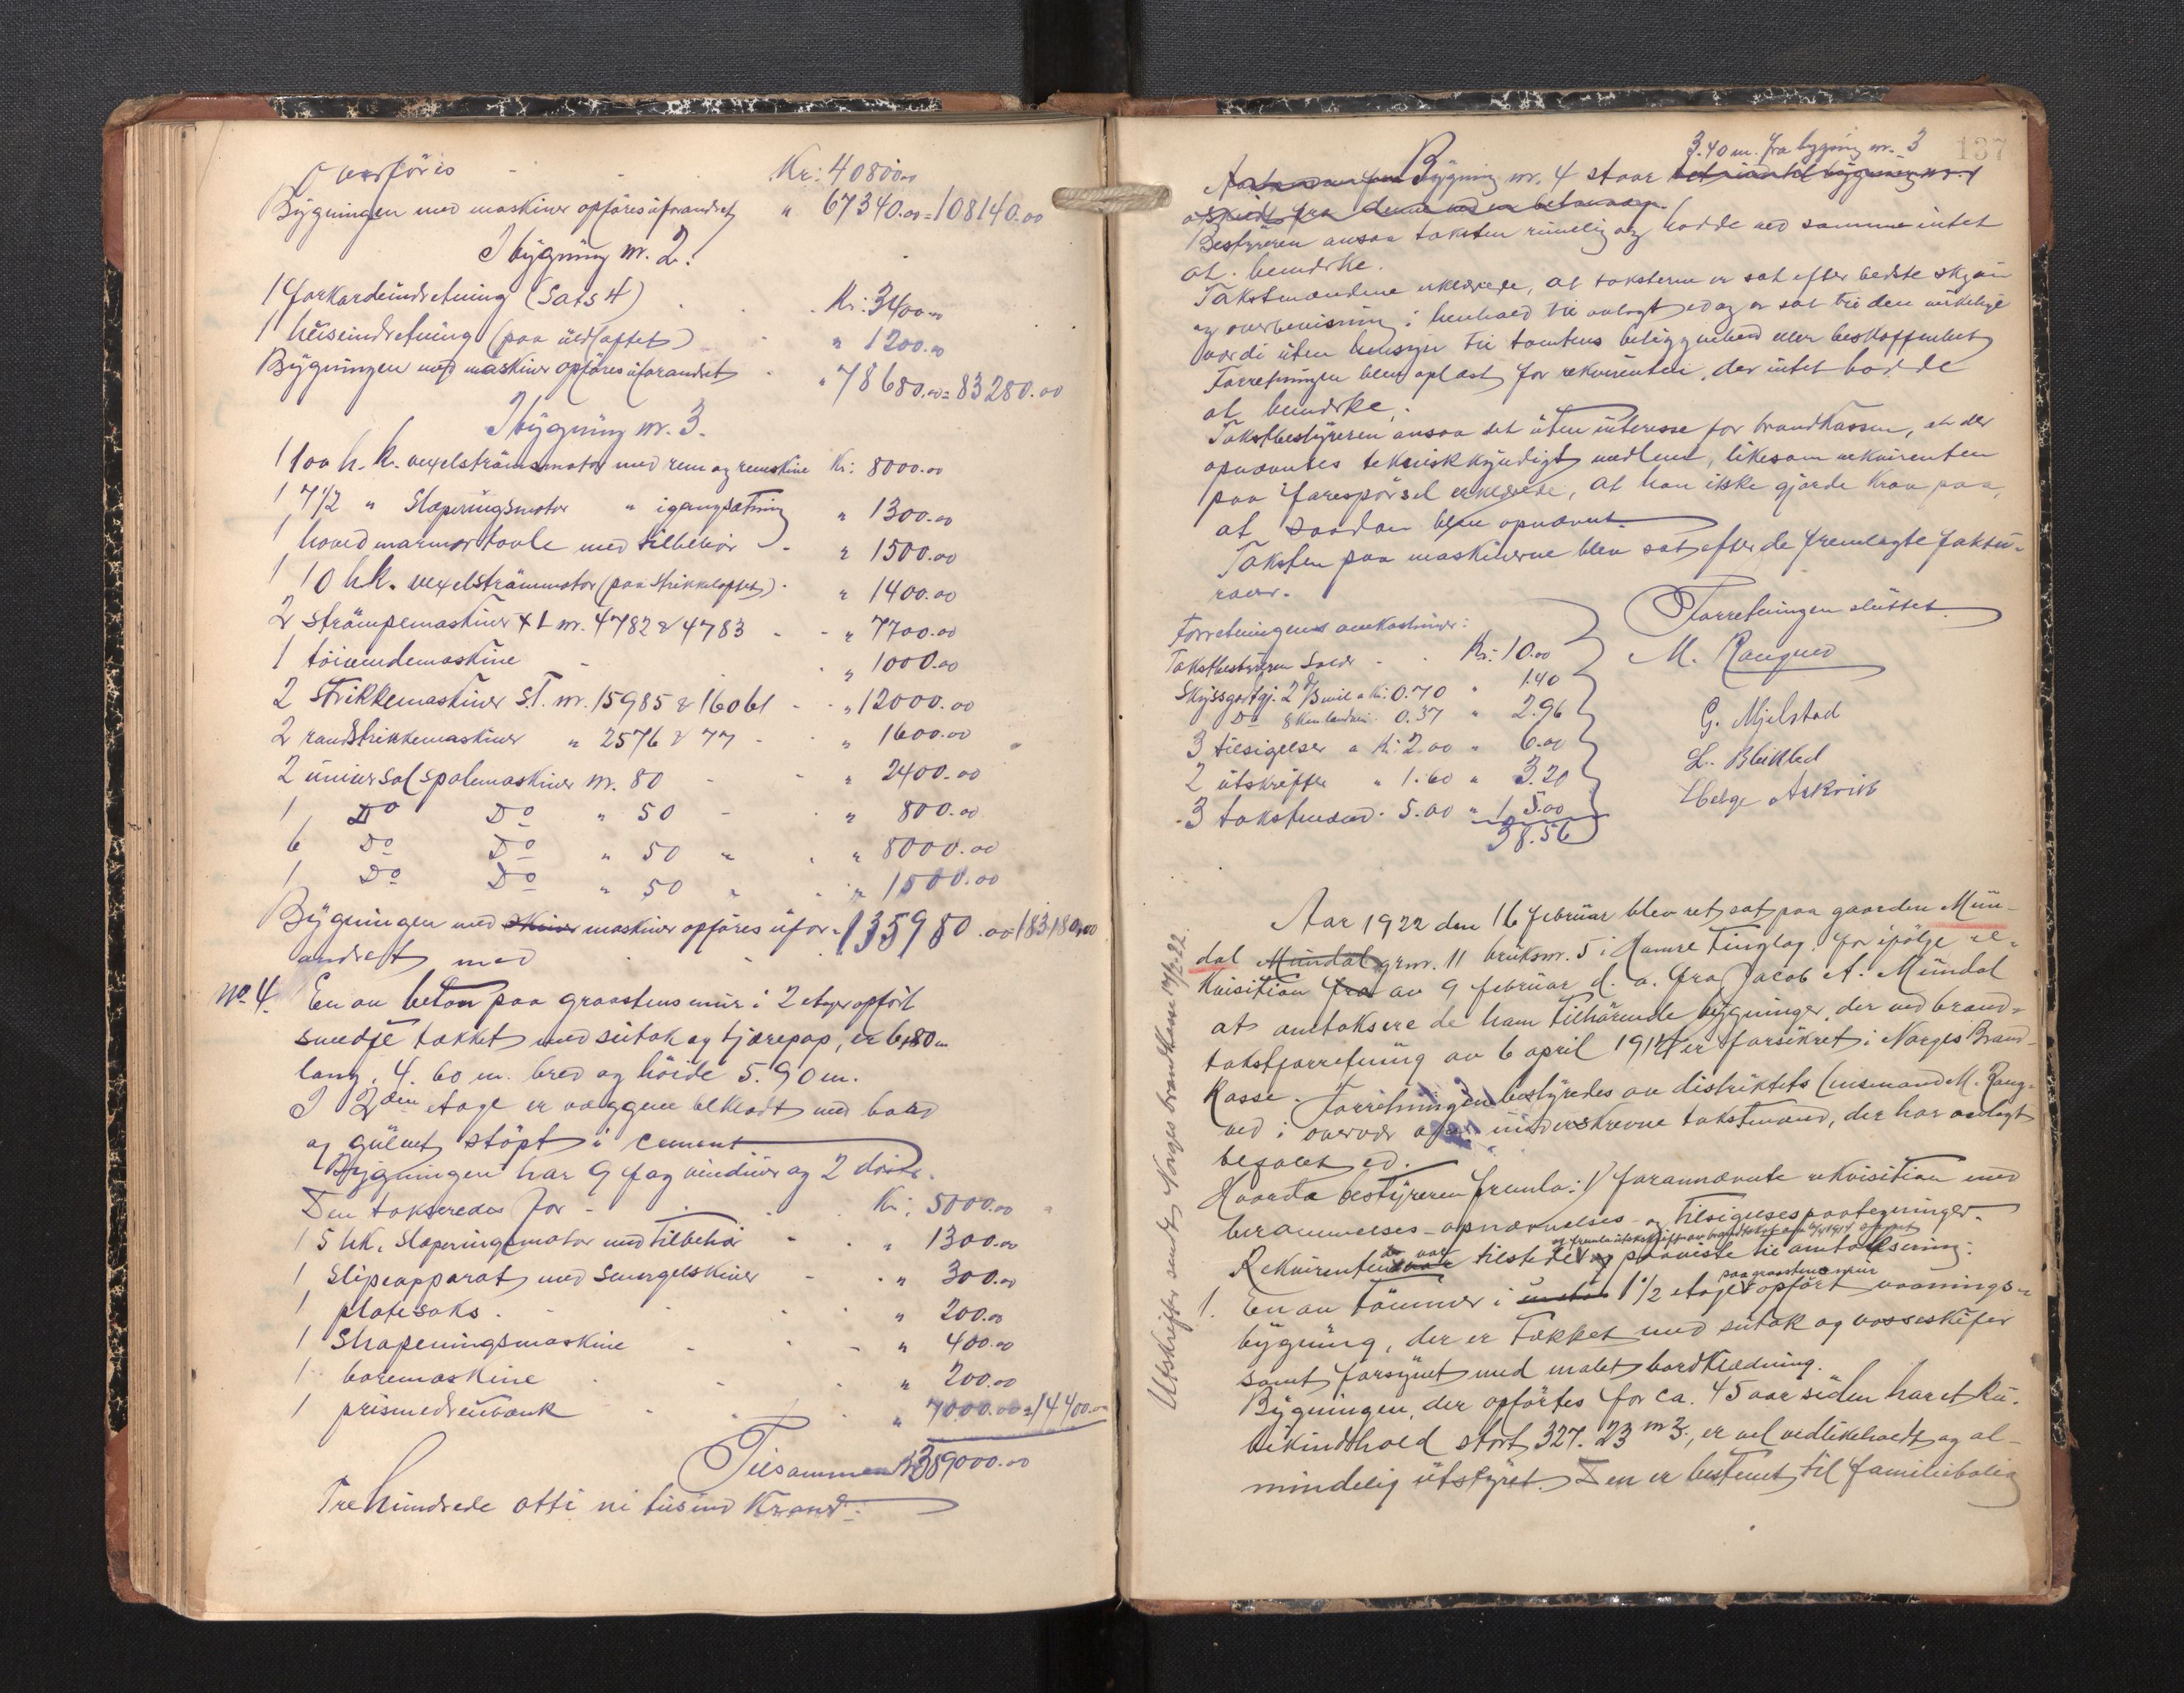 Overföres - - Kr: 40800.00
Bygningen med maskiner opföres uforandret " 67340.00=108140.00
I bygning nr. 2.
1 forkardeindretning (Sats 4) . . Kr: 3400.00
1 heiseindretning (paa uldloftet) " 1200.00
Bygningen med maskiner opföres uforandret - " 78680.00=83280.00
I bygning nr. 3.
1 100 h.k. vexelströmsmotor med rem og remskive Kr: 8000.00
1 7 1/2 " Slæperingsmotor " igangsætning " 1300.00
1 hoved marmortavle med tilbehör - " 1500.00
1 10 hk. vexelströmmotor (paa strikkeloftet) - " 1400.00
2 strömpemaskiner XL nr. 4782 & 4783 - - " 7700.00
1 töivendemaskine - . " 1000.00
2 Strikkemaskiner S.T. nr. 15985 & 16061 - - " 12000.00
2 randstrikkemaskiner " 2576 & 77 - " 1600.00
2 universalspolemaskiner nr. 80 - - " 2400.00
1 Do Do " 50 - " 800.00
6 Do Do " 50 " . " 8000.00
1 Do Do " 50 " . " 1500.00
Bygningen med maskiner opföres ufor- " 135980.00=183180.00
andret med
No 4. En av beton paa graastensmur i 2 etager opfört
smedje takket med sutak og tjærepap, er 6,80 m
lang, 4.60 m. bred og höide 5.90 m.
I 2den etage er væggene beklædt med bord
og gulvet stöpt i cement
Bygningen har 9 fag vinduer og 2 döre.
Den takseredes for - . . Kr: 5000.00
1 5 hk. Slæperingsmotor med tilbehör - . " 1300.00
1 Slipeapparat med Smergelskiver - . " 300.00
1 platesaks . - . . " 200.00
1 Shapeningsmaskine - - " 400.00
1 boremaskine . . . " 200.00
1 prismedreiebænk - . . " 7000.00=14400.00
Tilsammen kr 389000.00
Tre hundrede otti ni tusind Kroner.
137
3.40 m. fra bygning nr. 3
Bygning nr. 4 staar
Bestyreren ansaa taksten rimelig og hadde ved samme intet
at bemerke.
Takstmændene erklærede, at taksterne er sat efter bedste skjön
og overbevisning i henhold til avlagt ed og er sat til den virkelige
værdi uten hensyn til tomtens beliggenhed eller beskaffenhet
Forretningen blev oplæst for rekvirenten, der intet hadde
at bemerke.
Takstbestyreren ansaa det uten interesse for brandkassen, at der
opnævntes teknisk kyndigt medlem, likesom rekvirenten
paa forespörsel erklærede, at han ikke gjorde krav paa,
at saadan blev opnævnt.
Taksten paa maskinerne blev sat efter de fremlagte faktu-
raer.
Forretningen sluttet.
Forretningens omkostninger:
Takstbestyreren Salær - . Kr: 10.00
Skyssgodtgj. 2 2/3 mil a kr: 0.70 " 1.40
Do 8 km landvei 0.37 " 2.96
3 tilsigelser a Kr: 2.00 " 6.00
2 utskrifter " 1.60 " 3.20
3 takstmænd - 5.00 " 15.00
38.56
M. Rongved
G. Mjelstad
L. Bleikled
Helge Askvik
Aar 1922 den 16 februar blev ret sat paa gaarden Mun-
dal Mundal grnr. 11 bruksnr. 5 i Hamre Tinglag for ifölge re-
kvisition fra av 9 februar d. a. fra Jacob A. Mundal
at omtaksere de ham tilhörende bygninger, der ved brand-
takstforretning av 6 april 1914 er forsikret i Norges Brand-
kasse. Forretningen bestyredes av distriktets lensmand M. Rong-
ved i overvær av underskrevne takstmænd, der har avlagt
befalet ed.
Hvorda bestyreren fremla: 1/ forannævnte rekvisition med
berammelses- opnævnelses- og tilsigelsespaategninger.
og fremla utskrift av brandtakst av 6/4 1914
Rekvirenten var tilstede og paaviste til omtaksering:
paa graastensmur
1. En av tömmer i 1 1/2 etage opfört vaanings-
bygning, der er takket med sutak og vosseskifer
samt forsynet med malet bordklædning.
Bygningen, der opförtes for ca. 45 aar siden har et ku-
bikindhold stort 327.23 m3., er vel vedlikeholdt og al-
mindelig utstyret. Den er bestemt til familiebolig
Utskrifter sendt Norges brandkasse 17/2-22.